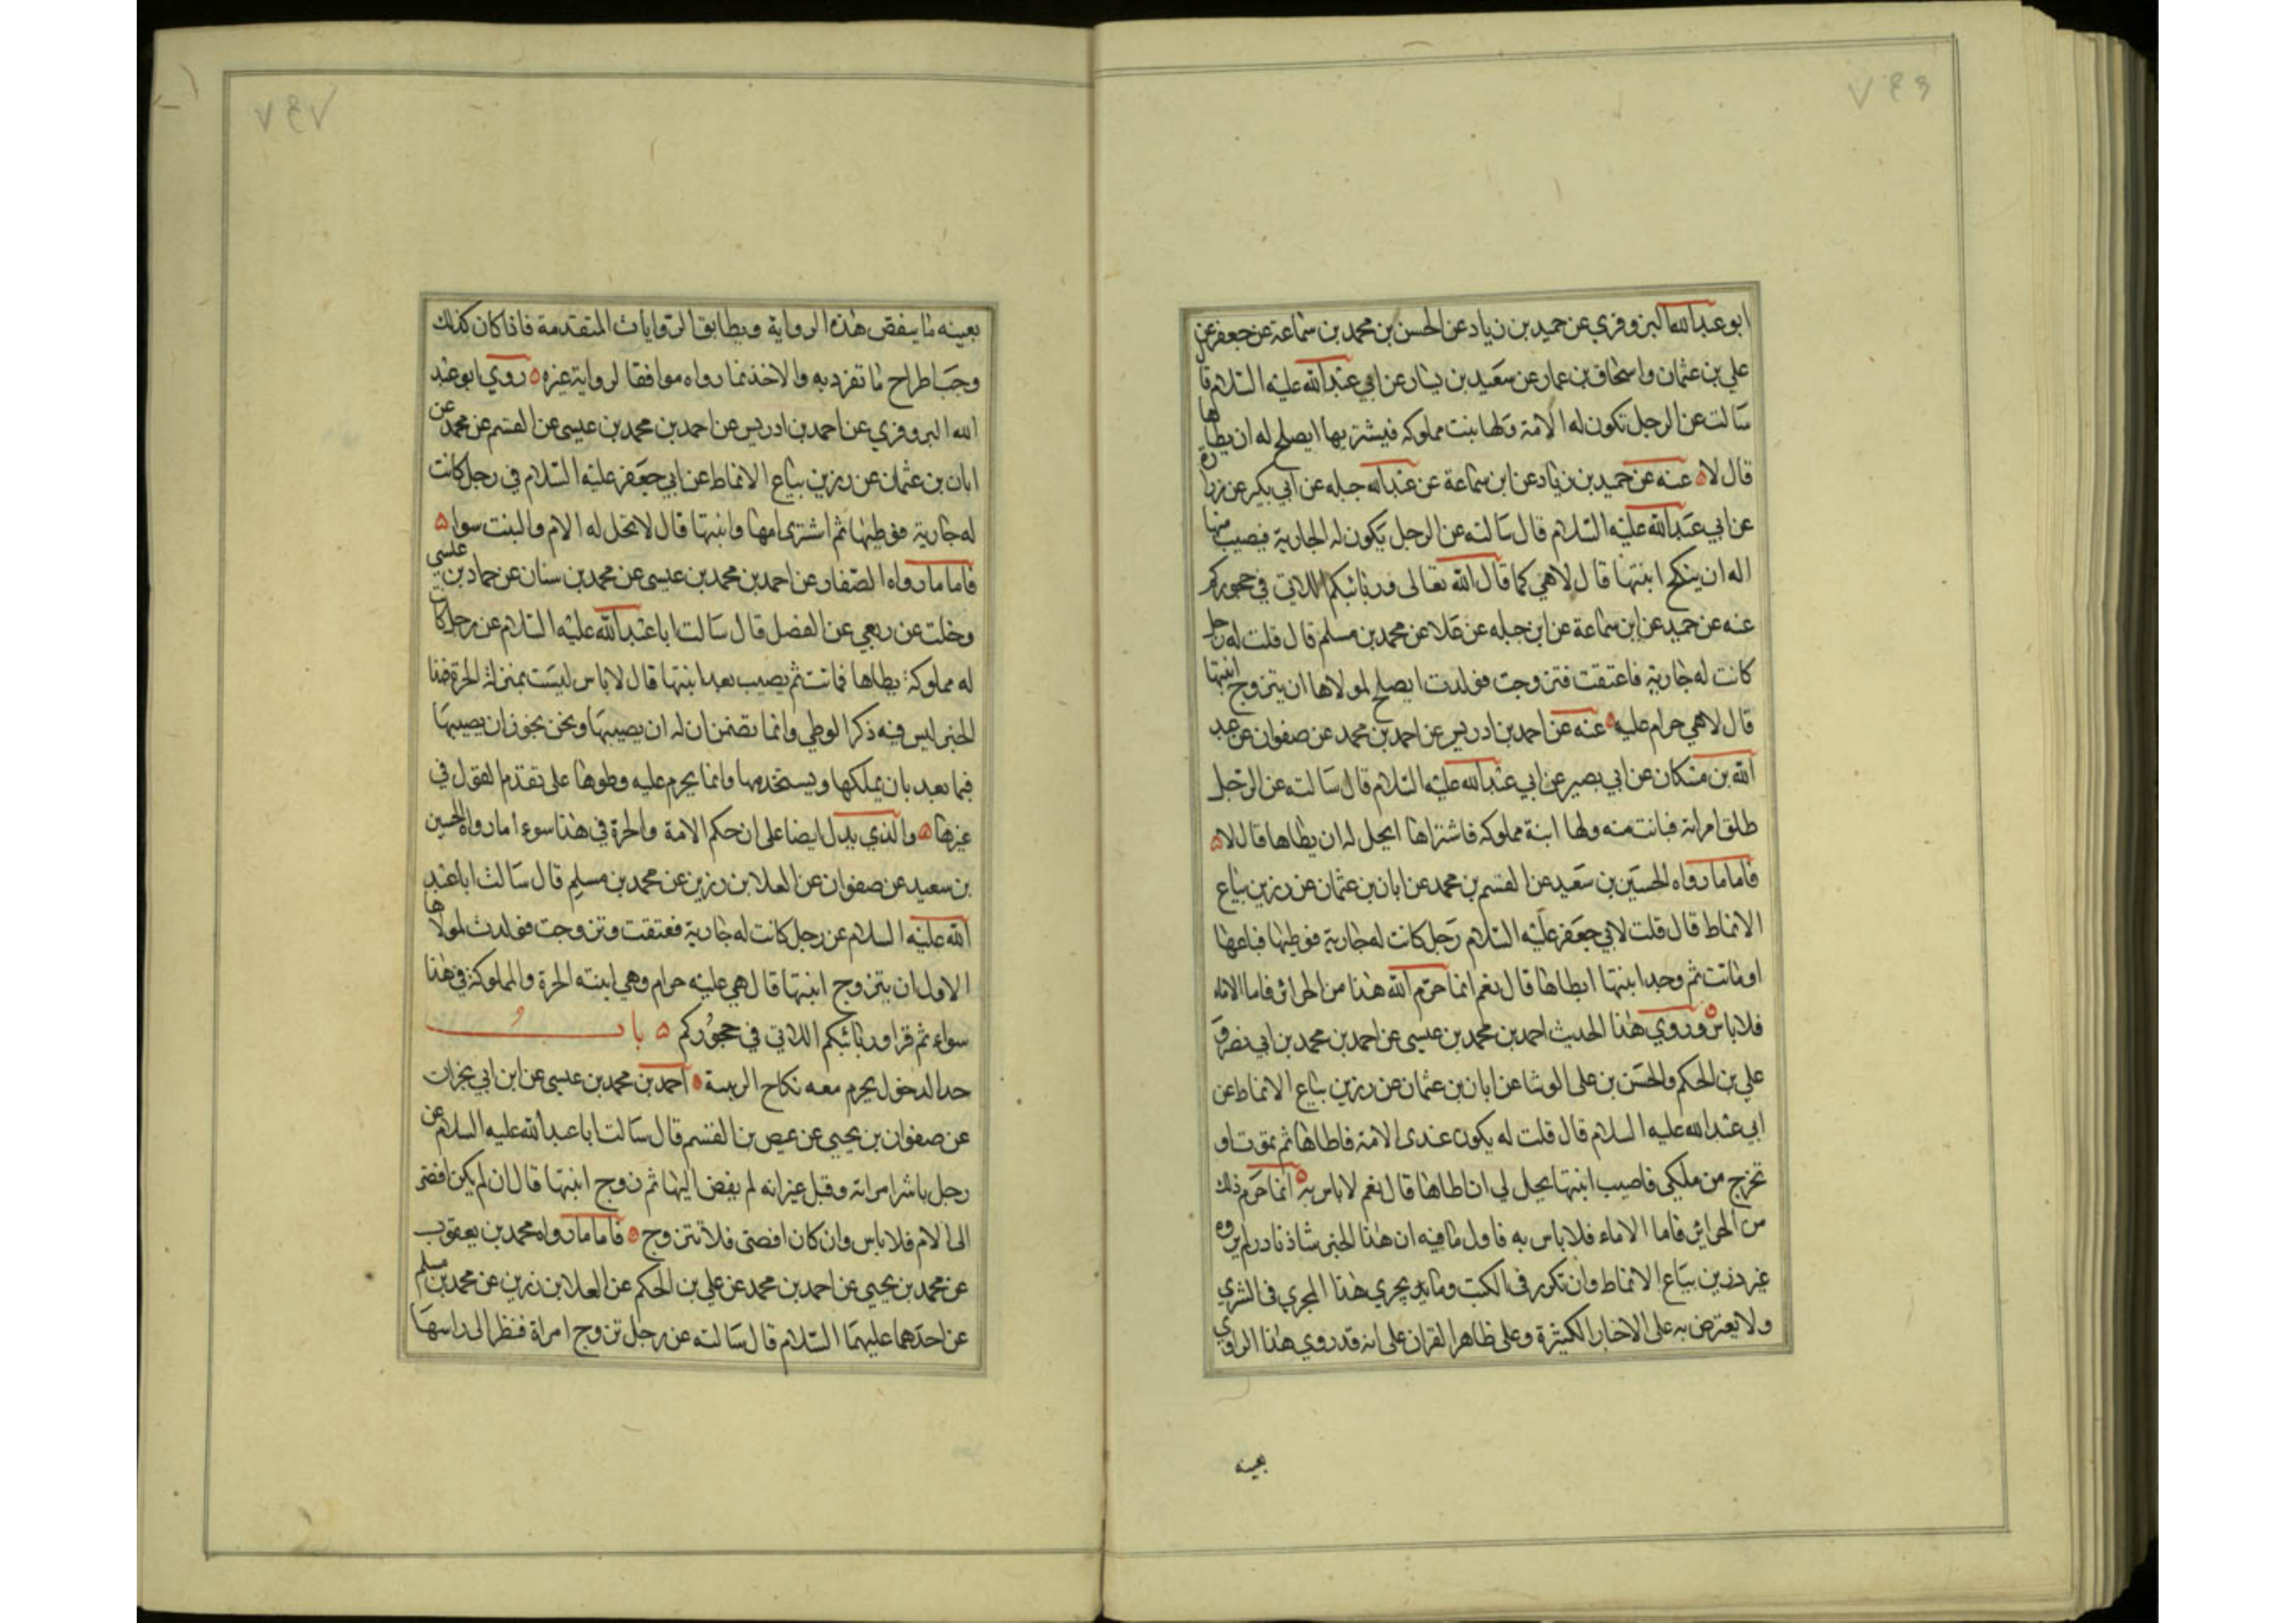 ٧٤٦
ابو عبدالله البزوفري عن حميد بن زياد عن الحسن بن محمد بن سماعة عن جعفر عن
علي بن عثمان واسحاق بن عمار عن سعيد بن يسار عن ابي عبدالله عليه السلام قا
سالت عن الرجل تكون له الامة ولها بنت مملوكه فيشتريها ايصلح له ان يطاها
قال لا ه عنه عن حميد بن زياد عن ابن سماعة عن عبدالله جبله عن ابي بكير عن زرارة
عن ابي عبدالله عليه السلام قال سالته عن الرجل يكون له الجارية فيصيب منها
اله ان ينكح ابنتها قال لا هي كما قال الله تعالى وربائبكم اللاتي في حجوركم
عنه عن حميد عن ابن سماعة عن ابن جبله عن علا عن محمد بن مسلم قال قلت له رجل
كانت له جارية فاعتقت فتزوجت فولدت ايصلح لمولاها ان يتزوج ابنتها
قال لا هي حرام عليه ه عنه عن احمد بن ادريس عن احمد بن محمد عن صفوان عن عبد
الله بن مسكان عن ابي بصير عن ابي عبدالله عليه السلام قال سالته عن الرجل
طلق امراته فبانت منه ولها ابنة مملوكه فاشتراها ايحل له ان يطاها قال لا ه
فاما ما رواه الحسين بن سعيد عن القسم بن محمد عن ابان بن عثمان عن رزين بياع
الانماط قال قلت لابي جعفر عليه السلام رجل كانت له جارية فوطيها فباعها
او ماتت ثم وجد ابنتها ايطاها قال نعم انما حرم الله هذا من الحرائر فاما الاماء
فلا باس ه وروي هذا الحديث احمد بن محمد بن عيسى عن احمد بن محمد بن ابي نصر و
علي بن الحكم والحسن بن علي الوشا عن ابان بن عثمان عن رزين بياع الانماط عن
ابي عبدالله عليه السلام قال قلت له يكون عندي الامة فاطاها ثم تموت او
تخرج من ملكي فاصيب ابنتها يحل لي ان اطاها قال نعم لا باس به ه انما حرم ذلك
من الحرائر فاما الاماء فلا باس به فاول ما فيه ان هذا الخبر شاذ نادر لم يروه
غير رزين بياع الانماط وان تكرر في الكتب وما يجري هذا المجري في الشري
ولا يعترض به على الاخبار الكثيرة وعلى ظاهر القران على انه قد روي هذا الراوي
بعينه
٧٤٧
بعينه ما ينقض هذه الرواية ويطابق الروايات المتقدمة فاذا كان كذلك
وجب اطراح ما تفرد به والاخذ بما رواه موافقا لرواية غيره ه روي ابو عبد
الله البزوفري عن احمد بن ادريس عن احمد بن محمد بن عيسى عن القسم عن محمد عن
ابان بن عثمان عن رزين بياع الانماط عن ابي جعفر عليه السلام في رجل كانت
له جارية فوطيها ثم اشترى امها وابنتها قال لا تحل له الام والبنت سوا ه
فاما ما رواه الصفار عن احمد بن محمد بن عيسى عن محمد بن سنان عن حماد بن عيسى
وخلت عن ربعي عن الفضل قال سالت ابا عبدالله عليه السلام عن رجل كان
له مملوكة يطاها فماتت ثم يصيب بعد ابنتها قال لا باس ليست بمنزلة الحرة فهذا
الخبر ليس فيه ذكر الوطي وانما تضمن ان له ان يصيبها ونحن نجوز ان يصيبها
فيما بعد بان يملكها ويستخدمها وانما يحرم عليه وطوها على تقدم القول في
غيرها ه والذي يدل ايضا على ان حكم الامة والحرة في هذا سوء اما رواه الحسين
بن سعيد عن صفوان عن العلا بن رزين عن محمد بن مسلم قال سالت ابا عبد
الله عليه السلام عن رجل كانت له جارية فعتقت وتزوجت فولدت لمولاها
الاول ان يتزوج ابنتها قال هي عليه حرام وهي ابنته الحرة والمملوكة في هذا
سواء ثم قرا وربائبكم اللاتي في حجوركم ه باب
حد الدخول يحرم معه نكاح الربيبة ه احمد بن محمد بن عيسى عن ابن ابي نجران
عن صفوان بن يحيى عن عيص بن القسم قال سالت ابا عبدالله عليه السلام عن
رجل باشر امراته وقبل غير انه لم يفض اليها ثم زوج ابنتها قال ان لم يكن افضى
الى الام فلا باس وان كان افضى فلا تتزوج ه فاما ما رواه محمد بن يعقوب
عن محمد بن يحيى عن احمد بن محمد عن علي بن الحكم عن العلا بن رزين عن محمد بن مسلم
عن احدهما عليهما السلام قال سالته عن رجل تزوج امراة فنظر الى راسها